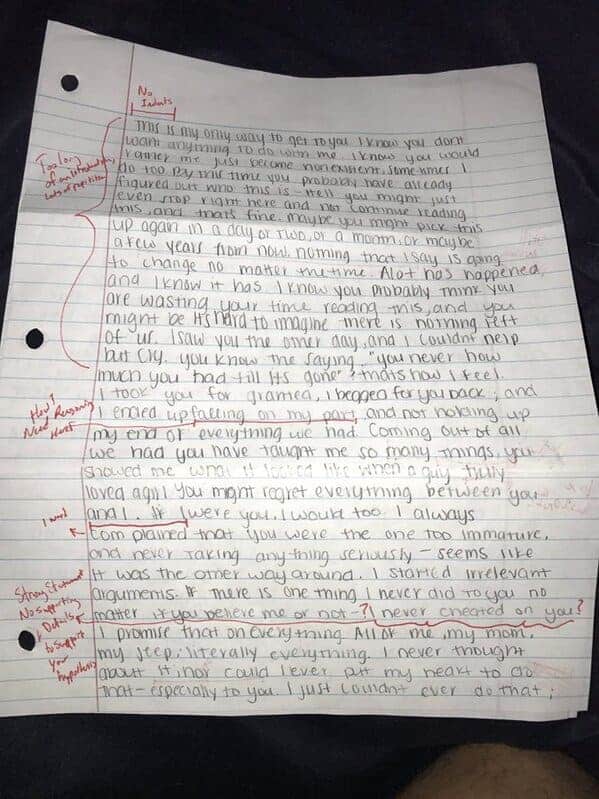 No
Indents
This is my only way to get to you I know you don't
want anything to do with me. I know you would
rather me just become nonexistent, sometimes I
do too. Pay this time you probably have already
figured out who this is - Hell you might just
even stop right here and not continue reading
this, and that's fine. maybe you might pick this
up again in a day or two, or a month, or maybe
a few years from now. nothing that I say is going
to change no matter the time. Alot has happened,
and I know it has. I know you probably think you
are wasting your time reading this, and you
might be. It's hard to imagine there is nothing left
of "us". I saw you the other day, and I couldn't help
but cry. you know the saying, "you never how
much you had till its gone"? thats how I feel.
I took you for granted, I begged for you back, and
I ended up falling on my part, and not holding up
my end of everything we had. Coming out of all
we had you have taught me so many things, you
showed me what it looked like when a guy truly
loved a girl. You might regret everything between you
and I. If I were you, I would too. I always
complained that you were the one too immature,
and never taking anything seriously - seems like
it was the other way around. I started irrelevant
arguments. If there is one thing I never did to you no
matter if you believe me or not -? I never cheated on you?
I promise that on everything. All of me, my mom,
my step, literally everything. I never thought
about it, nor could I ever put my heart to do
that - especially to you. I just couldn't ever do that;
Too long
of an introduction,
Lots of repetition
How?
Need Reasoning
Here!
1 word
Strong Statement
No supporting
Details
to support
your
hypothesis